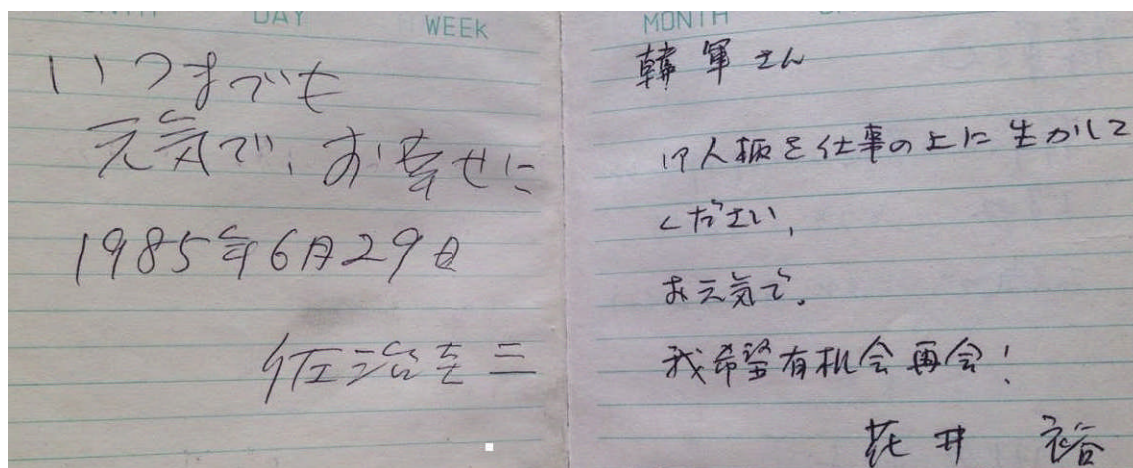 DAY
WEEK
いつまでも
元気で、お幸せに
1985年6月29日
佐治圭三
MONTH
韓軍さん
人柄を仕事の上に生かして
ください。
お元気で。
我希望有机会再会!
花井 裕